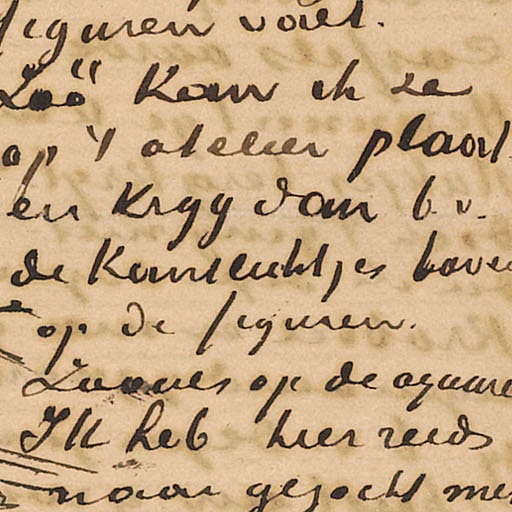 figuren valt.
Zóó kan ik ze
op 't atelier plaats
en kryg dan b.v.
de kamlichtjes boven
op de figuren.
Zooals op de aquare
Ik heb hier reeds
naar gezocht met